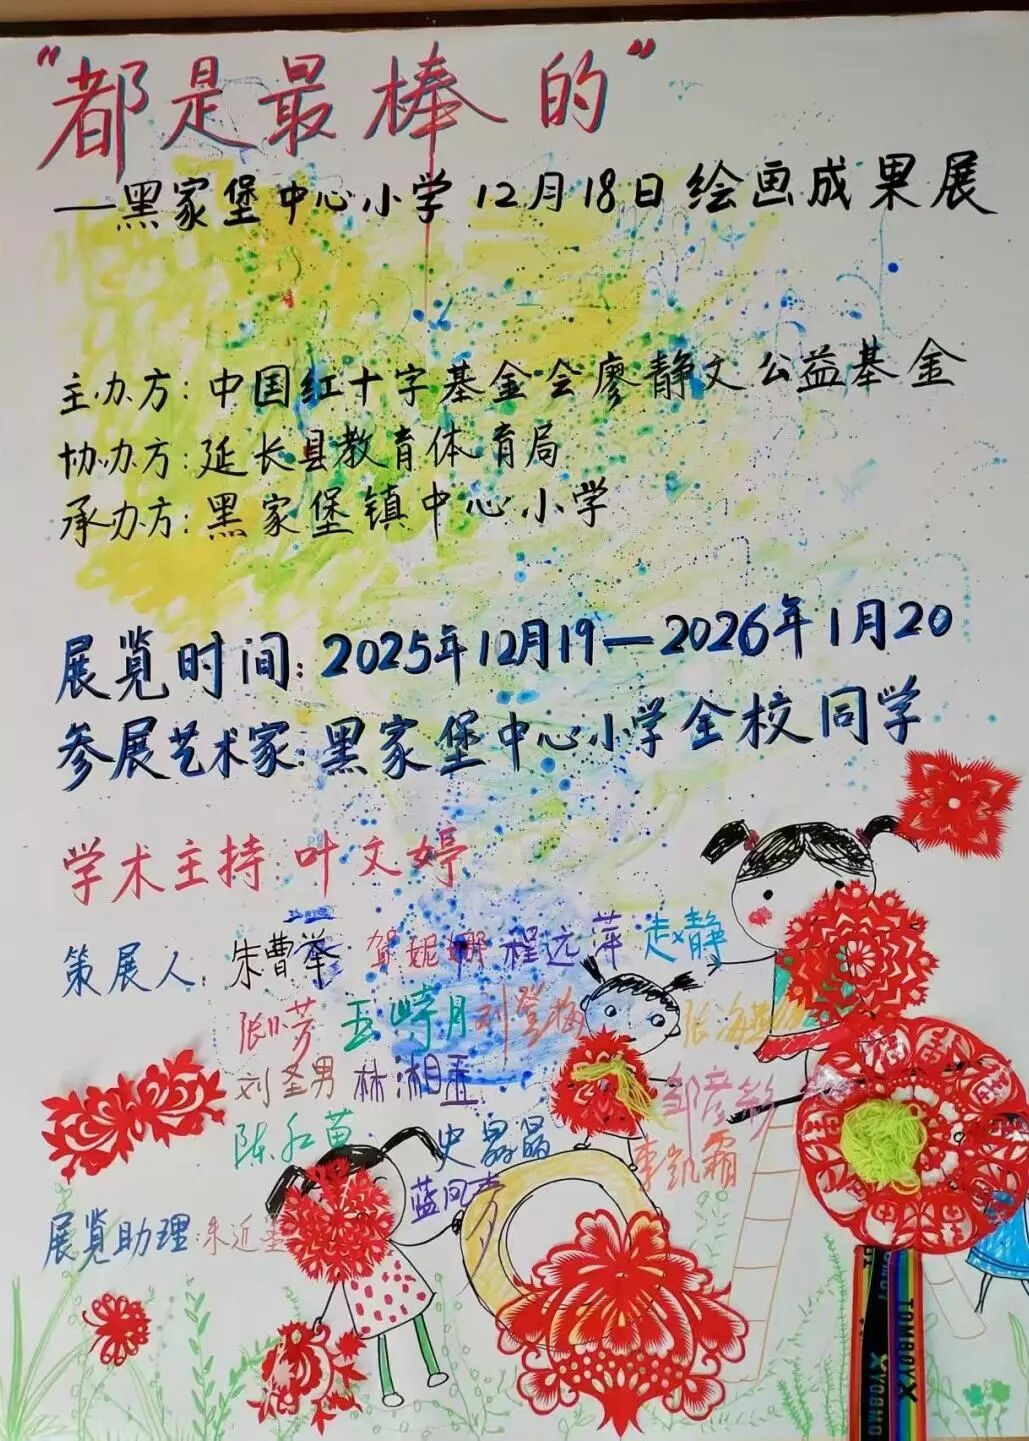 “都是最棒的”
——黑家堡中心小学12月18日绘画成果展
主办方:中国红十字基金会廖静文公益基金
协办方:延长县教育体育局
承办方:黑家堡镇中心小学
展览时间:2025年12月19—2026年1月20
参展艺术家:黑家堡中心小学全校同学
学术主持:叶文婷
策展人:朱曹举 贺妮娜 程远萍 赵静
张小芳 王峙月 刘登梅 张海燕
刘圣男 林湘玉 邹彦彩
陈红苗 史晶晶 李凯霜
蓝凤青
展览助理:朱近墨
TOMBOYX